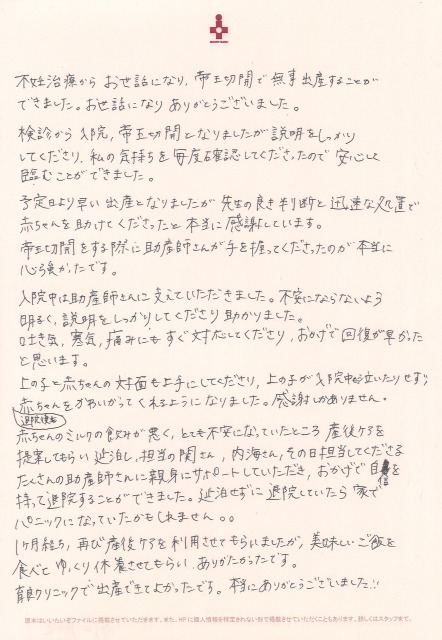 不妊治療から お世話になり、帝王切開で 無事 出産することが
できました。お世話になり ありがとうございました。
検診から 入院、帝王切開となりましたが 説明をしっかり
してくださり、私の気持ちを 毎度確認してくださったので 安心して
臨むことができました。
予定日より早い 出産となりましたが 先生の良き判断と 迅速な処置で
赤ちゃんを助けてくださったと 本当に感謝しています。
帝王切開をする際に助産師さんが手を握ってくださったのが本当に
心強かったです。
入院中は助産師さんに支えていただきました。不安にならないよう
明るく、説明をしっかりしてくださり 助かりました。
吐き気、寒気、痛みにも すぐ対応してくださり、おかげで 回復が早かった
と思います。
上の子と赤ちゃんの対面も上手にしてくださり、上の子が入院中も泣いたりせず、
赤ちゃんをかわいがってくれるようになりました。感謝しかありません。
退院後も
赤ちゃんのミルクの飲みが悪く、とても不安になっていたところ 産後ケアを
提案してもらい 延泊し、担当の関さん、内海さん、その日担当してくださる
たくさんの助産師さんに親身にサポートしていただき、おかげで 自信を
持って退院することができました。延泊せずに 退院していたら 家で
パニックになっていたかもしれません。。
1ヶ月経ち、再び産後ケアを利用させてもらいましたが、美味しいご飯を
食べて ゆっくり休養させてもらい、ありがたかったです。
クリニックで出産できてよかったです。本当にありがとうございました!!
原本はいいたいぞファイルに掲載させていただきます。また、HPに個人情報を特定されない形で掲載させていただくこともあります。詳しくはスタッフまで。